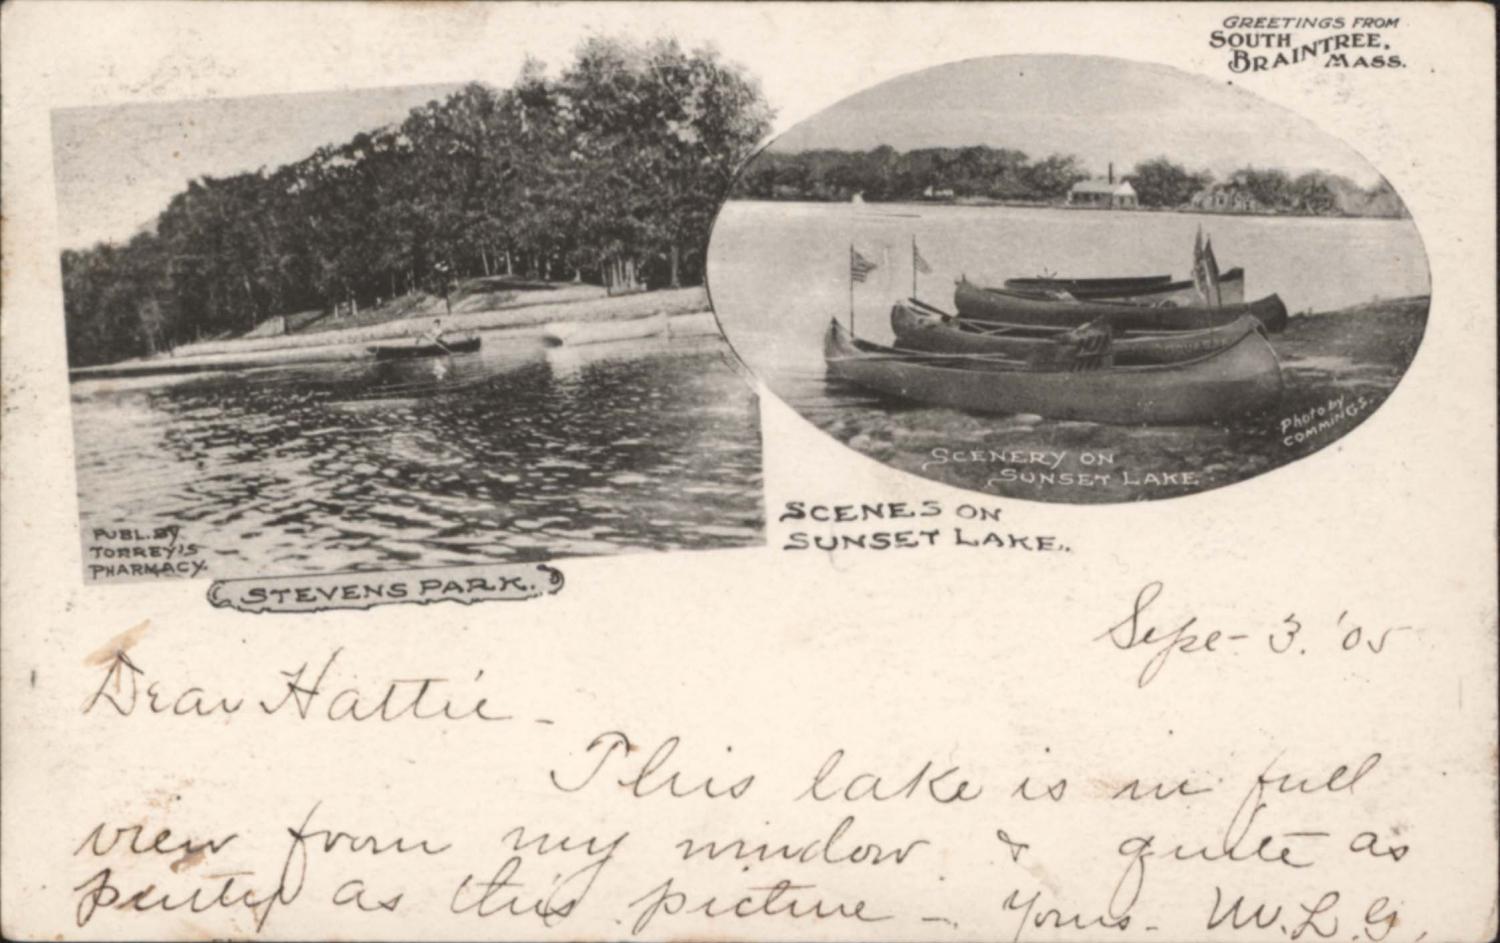 GREETINGS FROM
SOUTH BRAINTREE,
MASS.
Photo by
COMMINGS.
SCENERY ON
SUNSET LAKE
SCENES ON
SUNSET LAKE.
PUBL. BY
TORREY'S
PHARMACY.
STEVENS PARK.
Sept- 3. '05
Dear Hattie -
This lake is in full
view from my window & quite as
pretty as this picture - Yours - W. L. G.